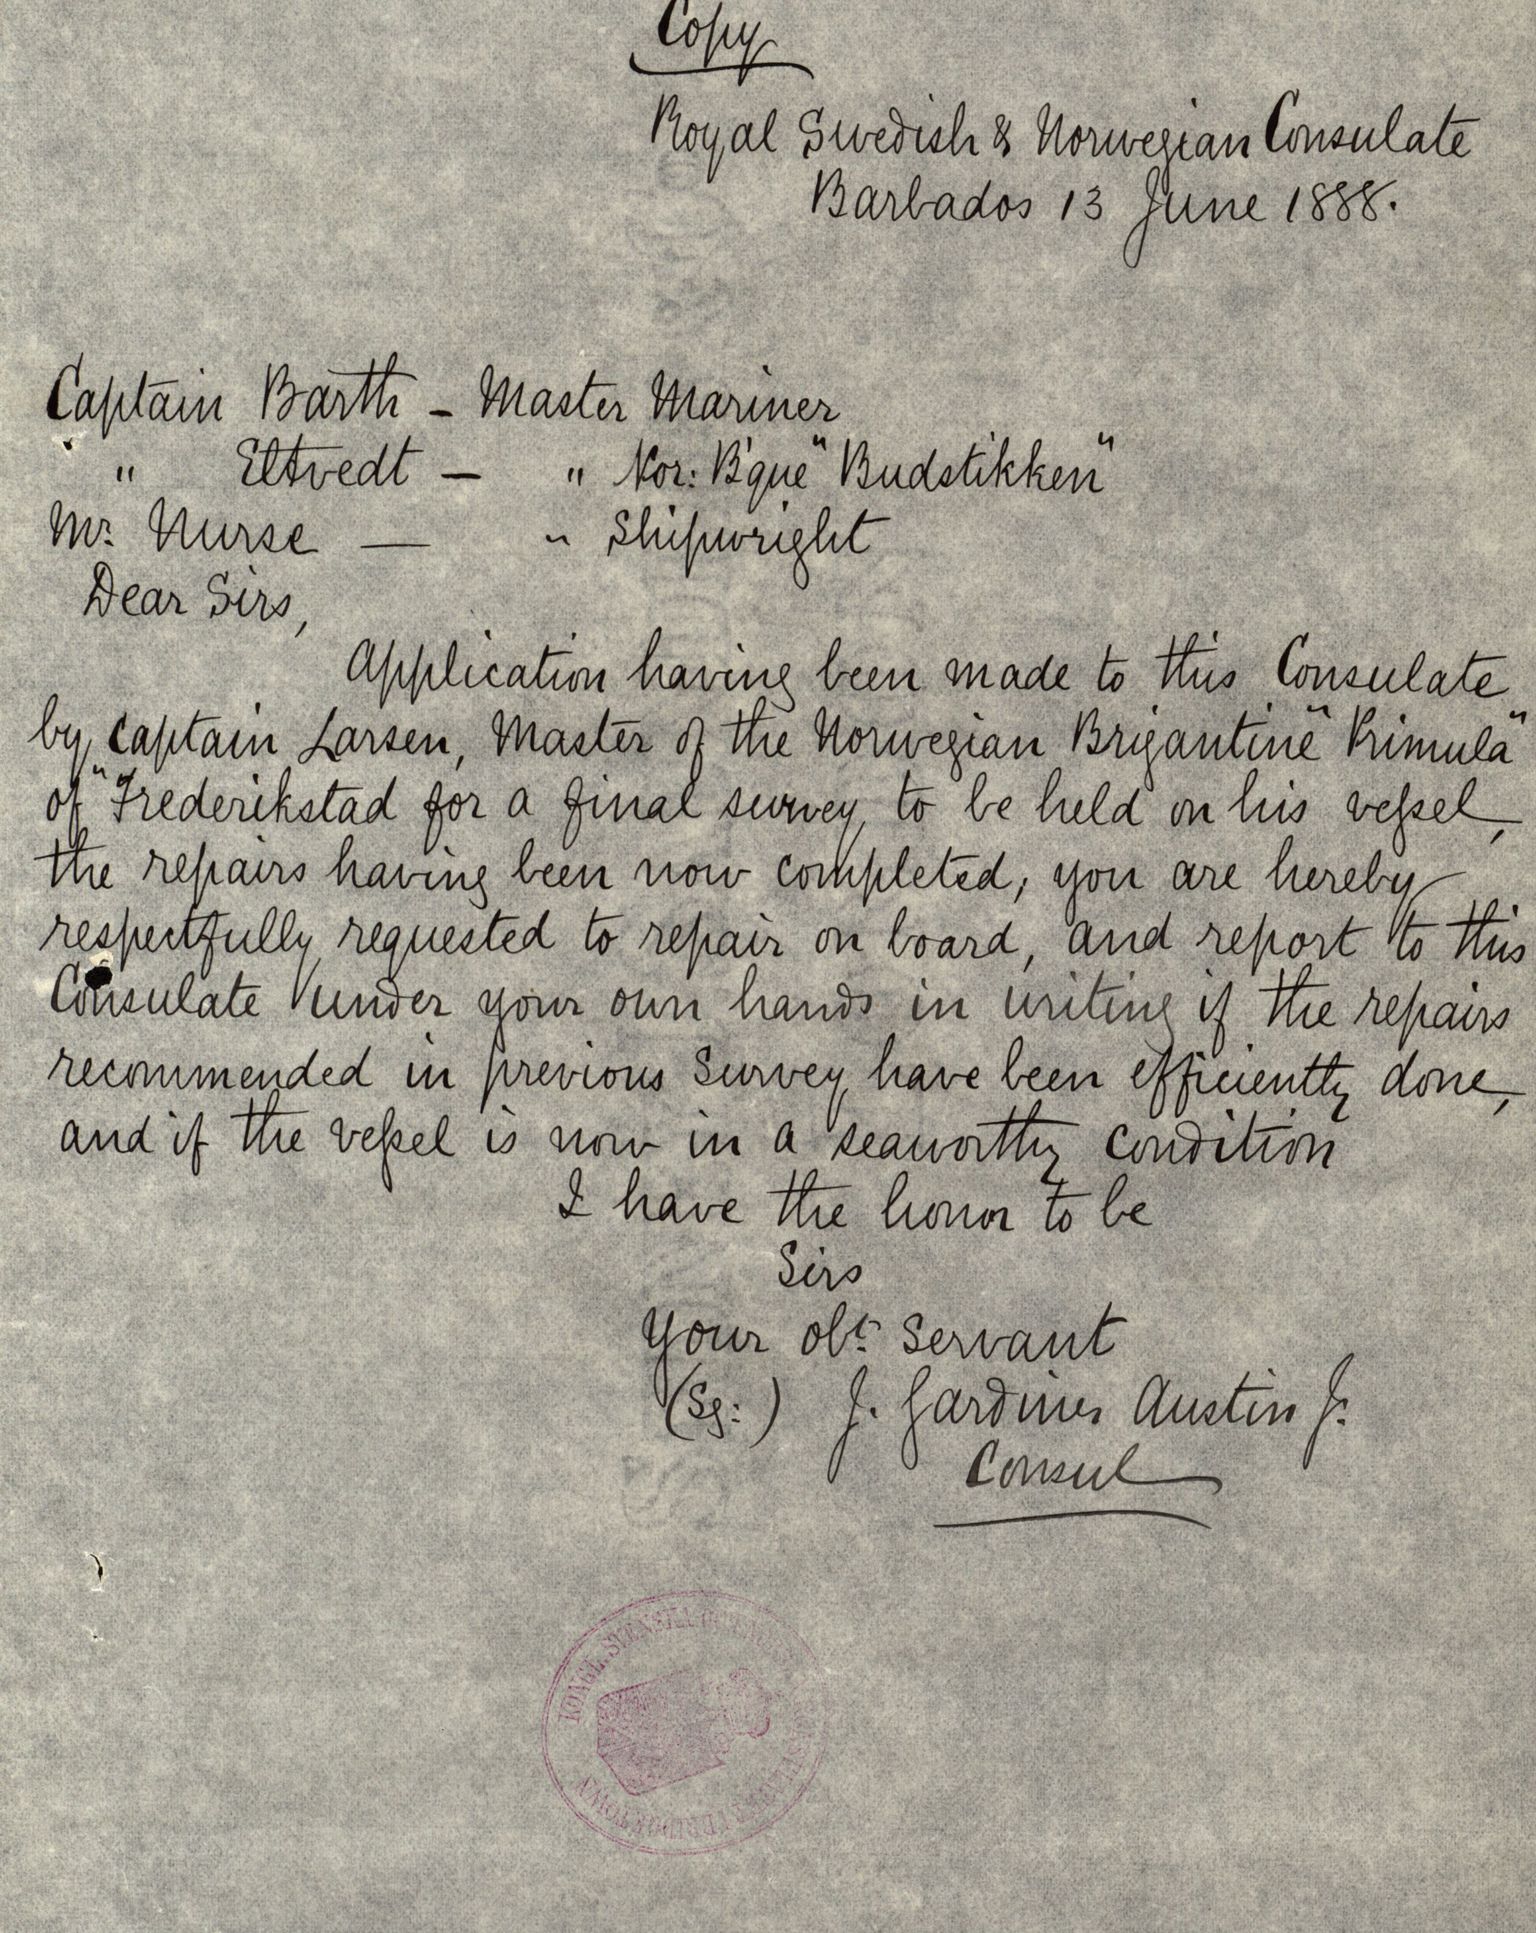 Copy
Royal Swedish & Norwegian Consulate
Barbados 13 June 1888.
Captain Barth - Master Mariner
" Eltvedt - " Nor: B'que "Budstikken"
Mr. Nurse — " Shipwright
Dear Sirs,
Application having been made to this Consulate
by Captain Larsen, Master of the Norwegian Brigantine "Primula"
of "Frederikstad for a final survey to be held on his vessel,
the repairs having been now completed, you are hereby
respectfully requested to repair on board, and report to this
Consulate under your own hands in writing if the repairs
recommended in previous Survey have been efficiently done,
and if the vessel is now in a seaworthy condition
I have the honor to be
Sirs
Your obt. Servant
(Sg:) J. Gardiner Austin Jr.
Consul